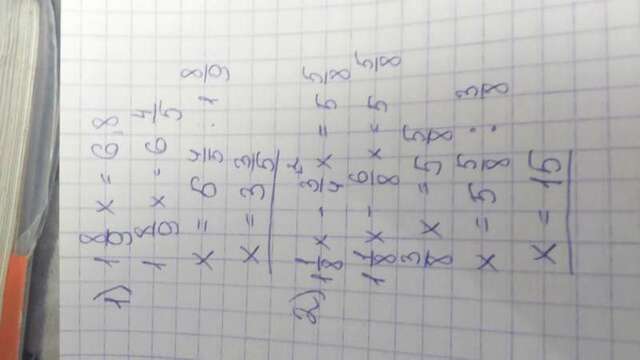 1) 1 8/9 x = 6,8
1 8/9 x = 6 4/5
x = 6 4/5 : 1 8/9
x = 3 3/5
2) 1 1/8 x - 3/4 x = 5 5/8
1 1/8 x - 6/8 x = 5 5/8
3/8 x = 5 5/8
x = 5 5/8 : 3/8
x = 15